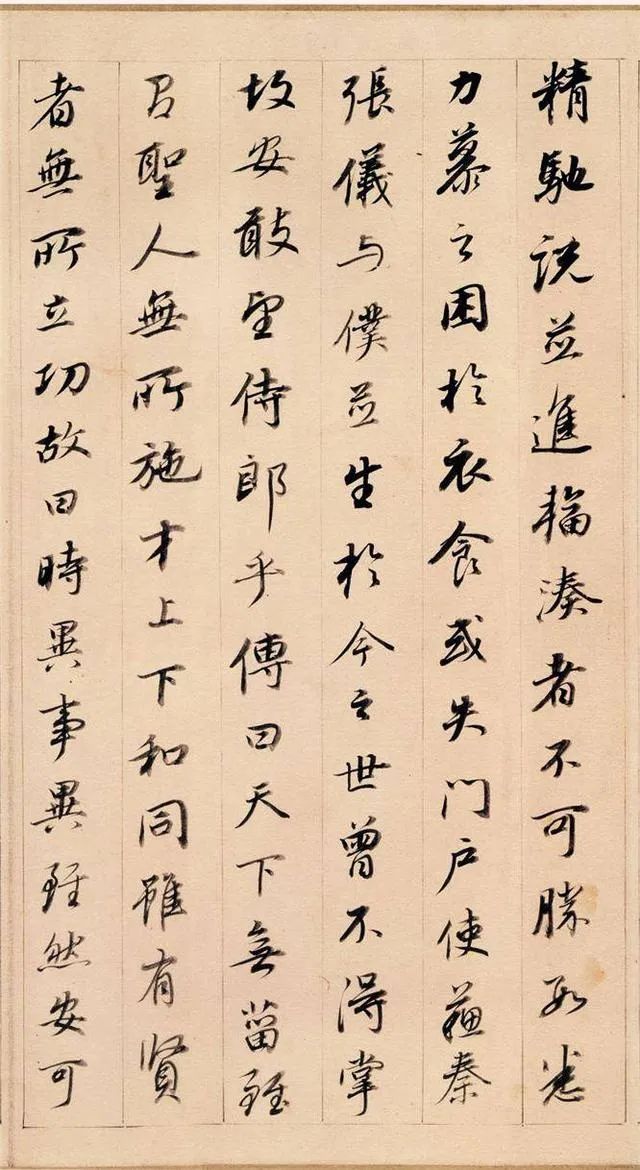 精馳説並進輻湊者不可勝数悉
力慕之困於衣食或失門戶使蘇秦
張儀与僕並生於今之世曾不得掌
故安敢望侍郎乎傳曰天下無菑雖
有聖人無所施才上下和同雖有賢
者無所立功故曰時異事異雖然安可